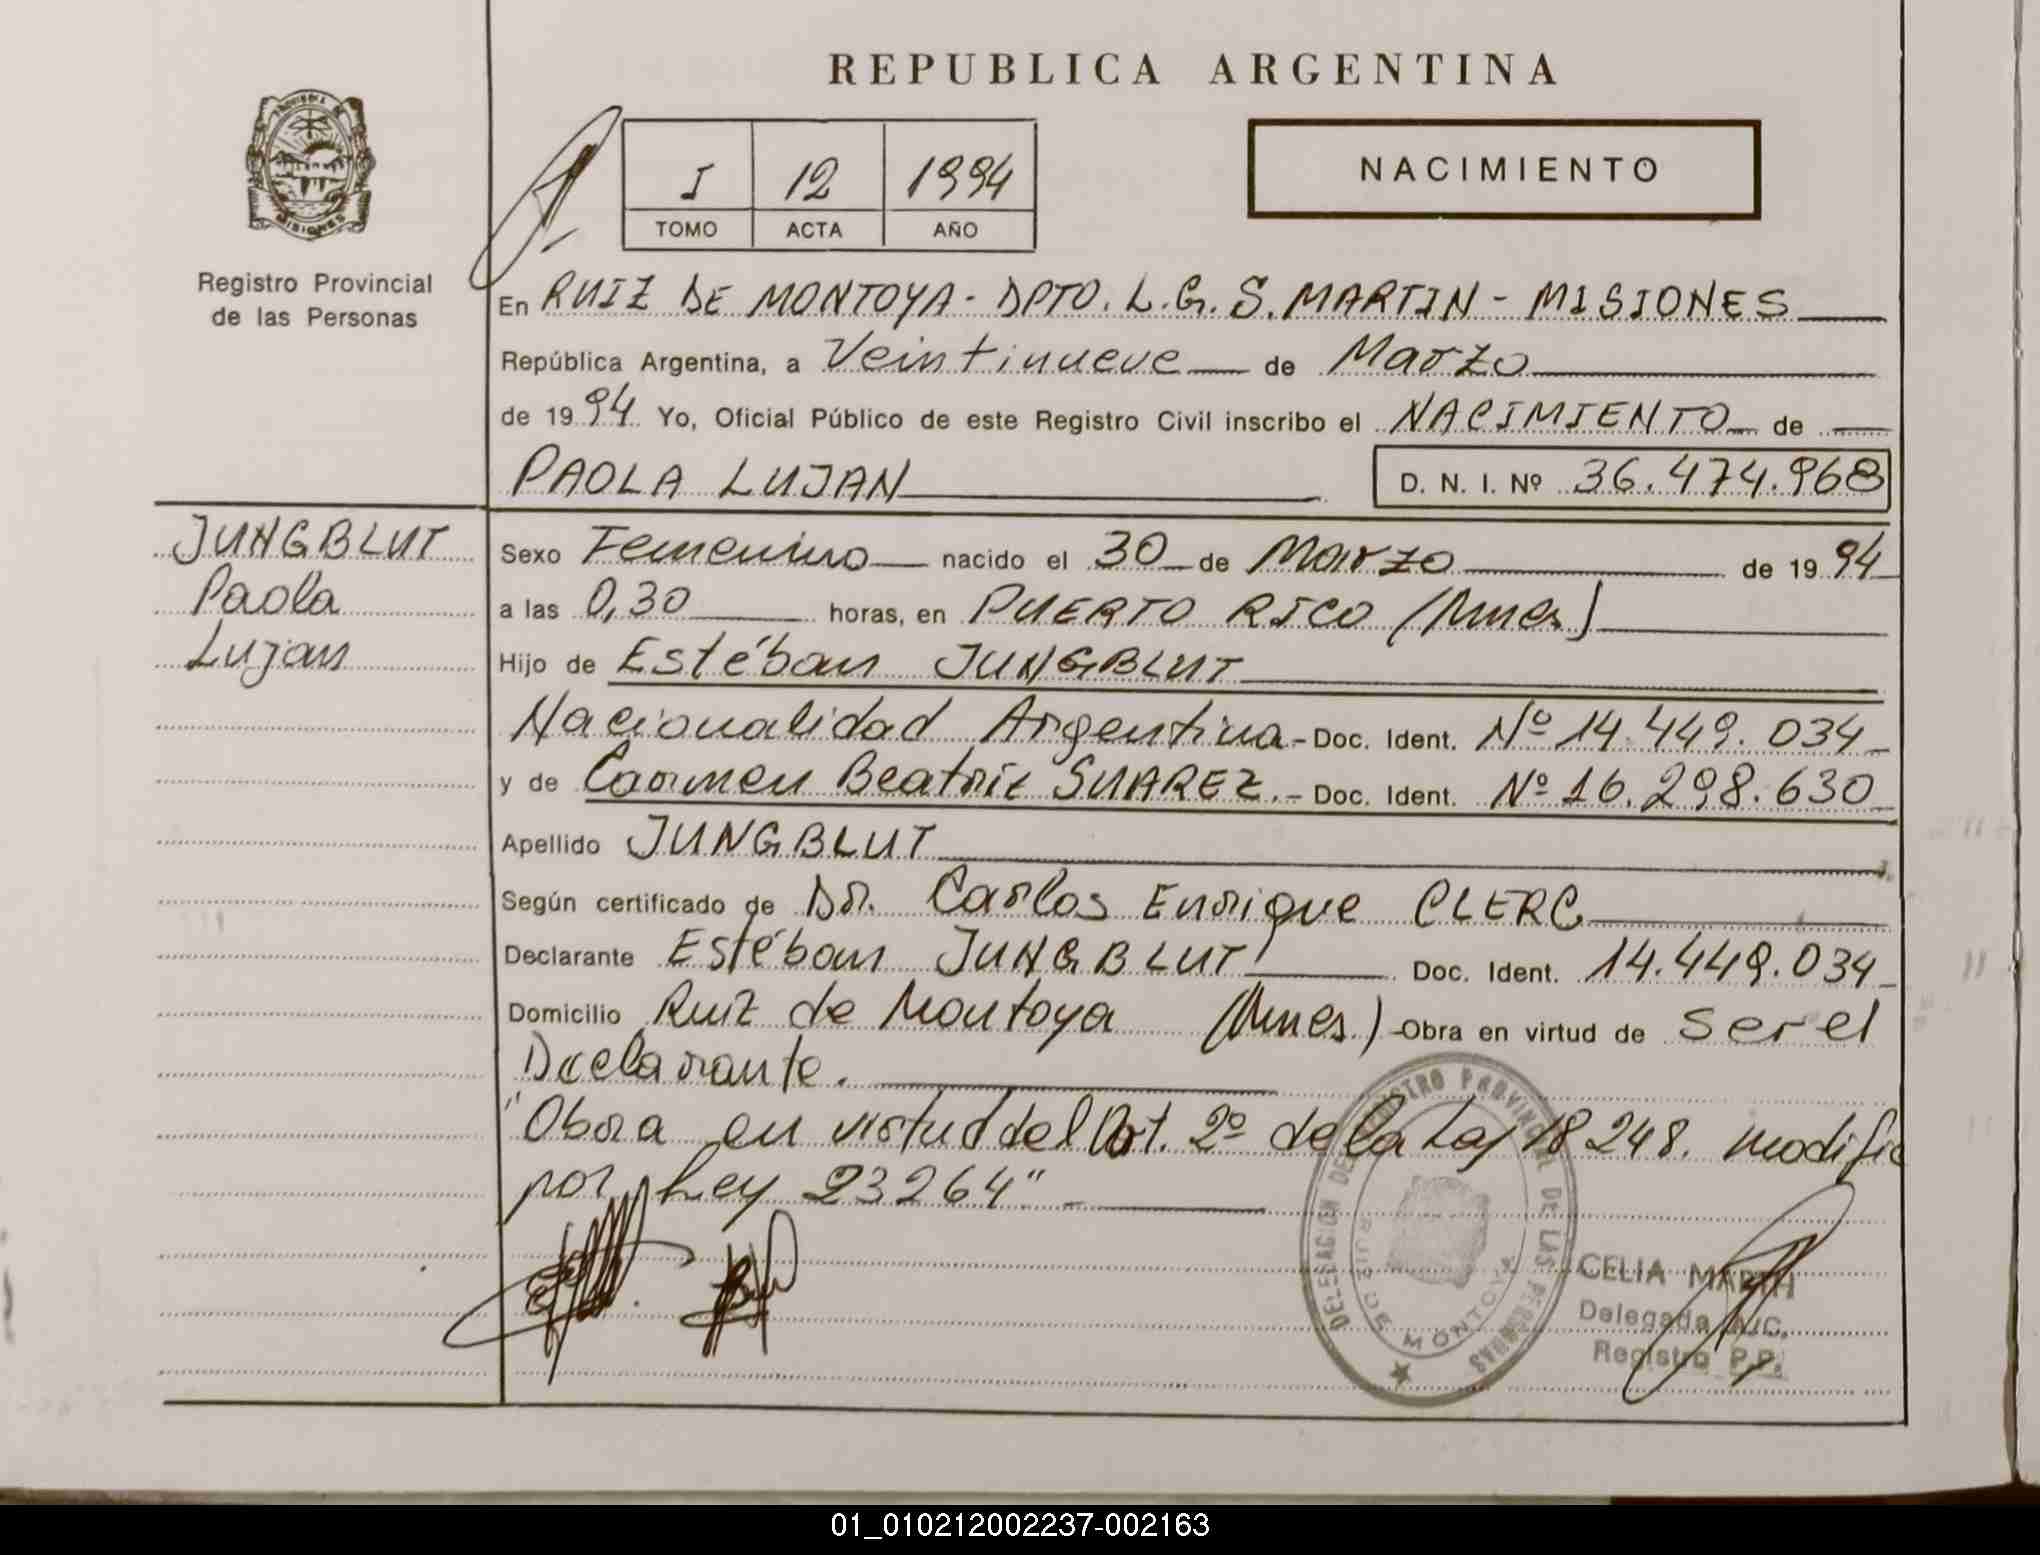 REPUBLICA ARGENTINA
PROVINCIA DE
MISIONES
Registro Provincial
de las Personas
I 12 1994
TOMO ACTA AÑO
NACIMIENTO
En RUIZ DE MONTOYA - DPTO. L.G.S. MARTIN - MISIONES
República Argentina, a Veintinueve de Marzo
de 1994 Yo, Oficial Público de este Registro Civil inscribo el NACIMIENTO de
PAOLA LUJAN D. N. I. Nº 36.474.968
JUNGBLUT
Paola
Lujan
Sexo Femenino nacido el 30 de Marzo de 1994
a las 0,30 horas, en PUERTO RICO (Mnes)
Hijo de Estéban JUNGBLUT
Nacionalidad Argentina - Doc. Ident. Nº 14.449.034
y de Carmen Beatriz SUAREZ. - Doc. Ident. Nº 16.298.630
Apellido JUNGBLUT
Según certificado de Dr. Carlos Enrique CLERC
Declarante Estéban JUNGBLUT Doc. Ident. 14.449.034
Domicilio Ruiz de Montoya (Mnes) - Obra en virtud de ser el
Declarante.
"Obra en virtud del Art. 2º de la Ley 18248. modific
por Ley 23264"
DELEGACION DEL REGISTRO PROVINCIAL DE LAS PERSONAS
RUIZ DE MONTOYA
CELIA MARTH
Delegada A/C.
Registro P.P.
01_010212002237-002163